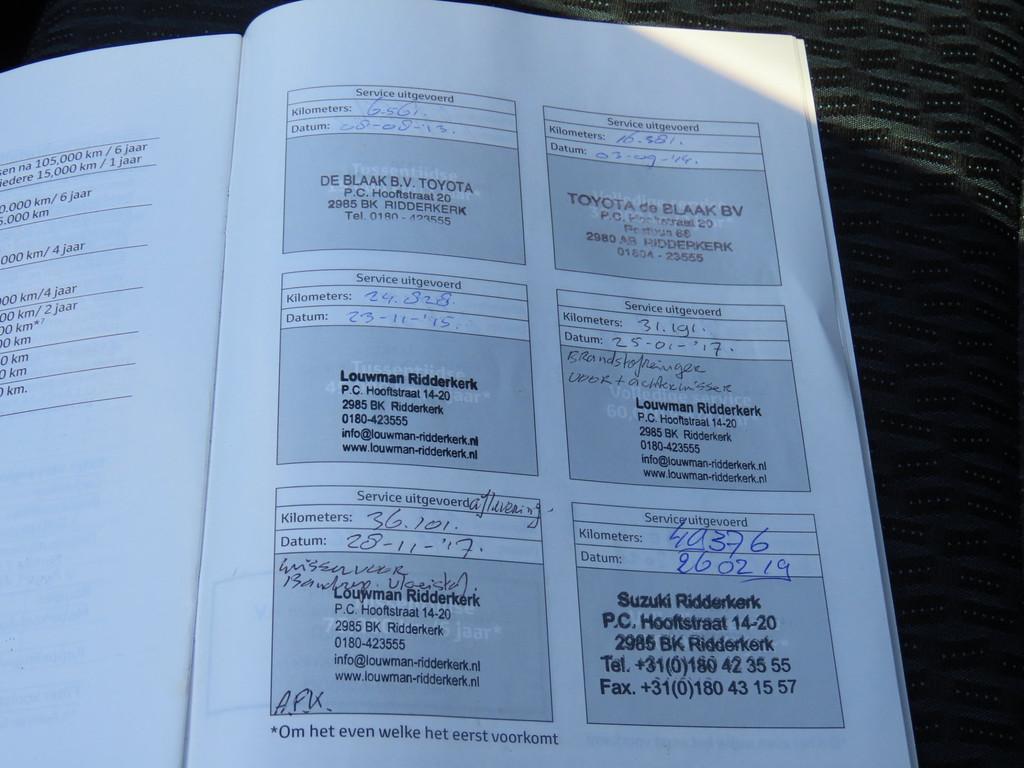 en na 105,000 km / 6 jaar
iedere 15,000 km / 1 jaar
0.000 km / 6 jaar
5.000 km
000 km/ 4 jaar
000 km/4 jaar
00 km/ 2 jaar
00 km*⁷
00 km
0 km
0 km
km.
Service uitgevoerd
Kilometers: 6.561.
Datum: 08-08-'13.
DE BLAAK B.V. TOYOTA
P.C. Hooftstraat 20
2985 BK RIDDERKERK
Tel. 0180 - 423555
Service uitgevoerd
Kilometers: 16.381.
Datum: 03-09-'14.
TOYOTA de BLAAK BV
P.C. Hooftstraat 20
Postbus 68
2980 AB RIDDERKERK
01804 - 23555
Service uitgevoerd
Kilometers: 24.828.
Datum: 23-11-'15.
Tussentijdse
Louwman Ridderkerk
P.C. Hooftstraat 14-20
2985 BK Ridderkerk
0180-423555
info@louwman-ridderkerk.nl
www.louwman-ridderkerk.nl
Service uitgevoerd
Kilometers: 31.191.
Datum: 25-01-'17.
Brandstofreiniger
voor + achterwisser
Volledige service
60,
Louwman Ridderkerk
P.C. Hooftstraat 14-20
2985 BK Ridderkerk
0180-423555
info@louwman-ridderkerk.nl
www.louwman-ridderkerk.nl
Service uitgevoerd aflevering.
Kilometers: 36.101.
Datum: 28-11-'17.
wisser voor
Bandrep. vloeistof.
Louwman Ridderkerk
P.C. Hooftstraat 14-20
2985 BK Ridderkerk
jaar*
0180-423555
info@louwman-ridderkerk.nl
www.louwman-ridderkerk.nl
A.F.K.
Service uitgevoerd
Kilometers: 40376
Datum: 260219
Suzuki Ridderkerk
P.C. Hooftstraat 14-20
2985 BK Ridderkerk
Tel. +31(0)180 42 35 55
Fax. +31(0)180 43 15 57
*Om het even welke het eerst voorkomt